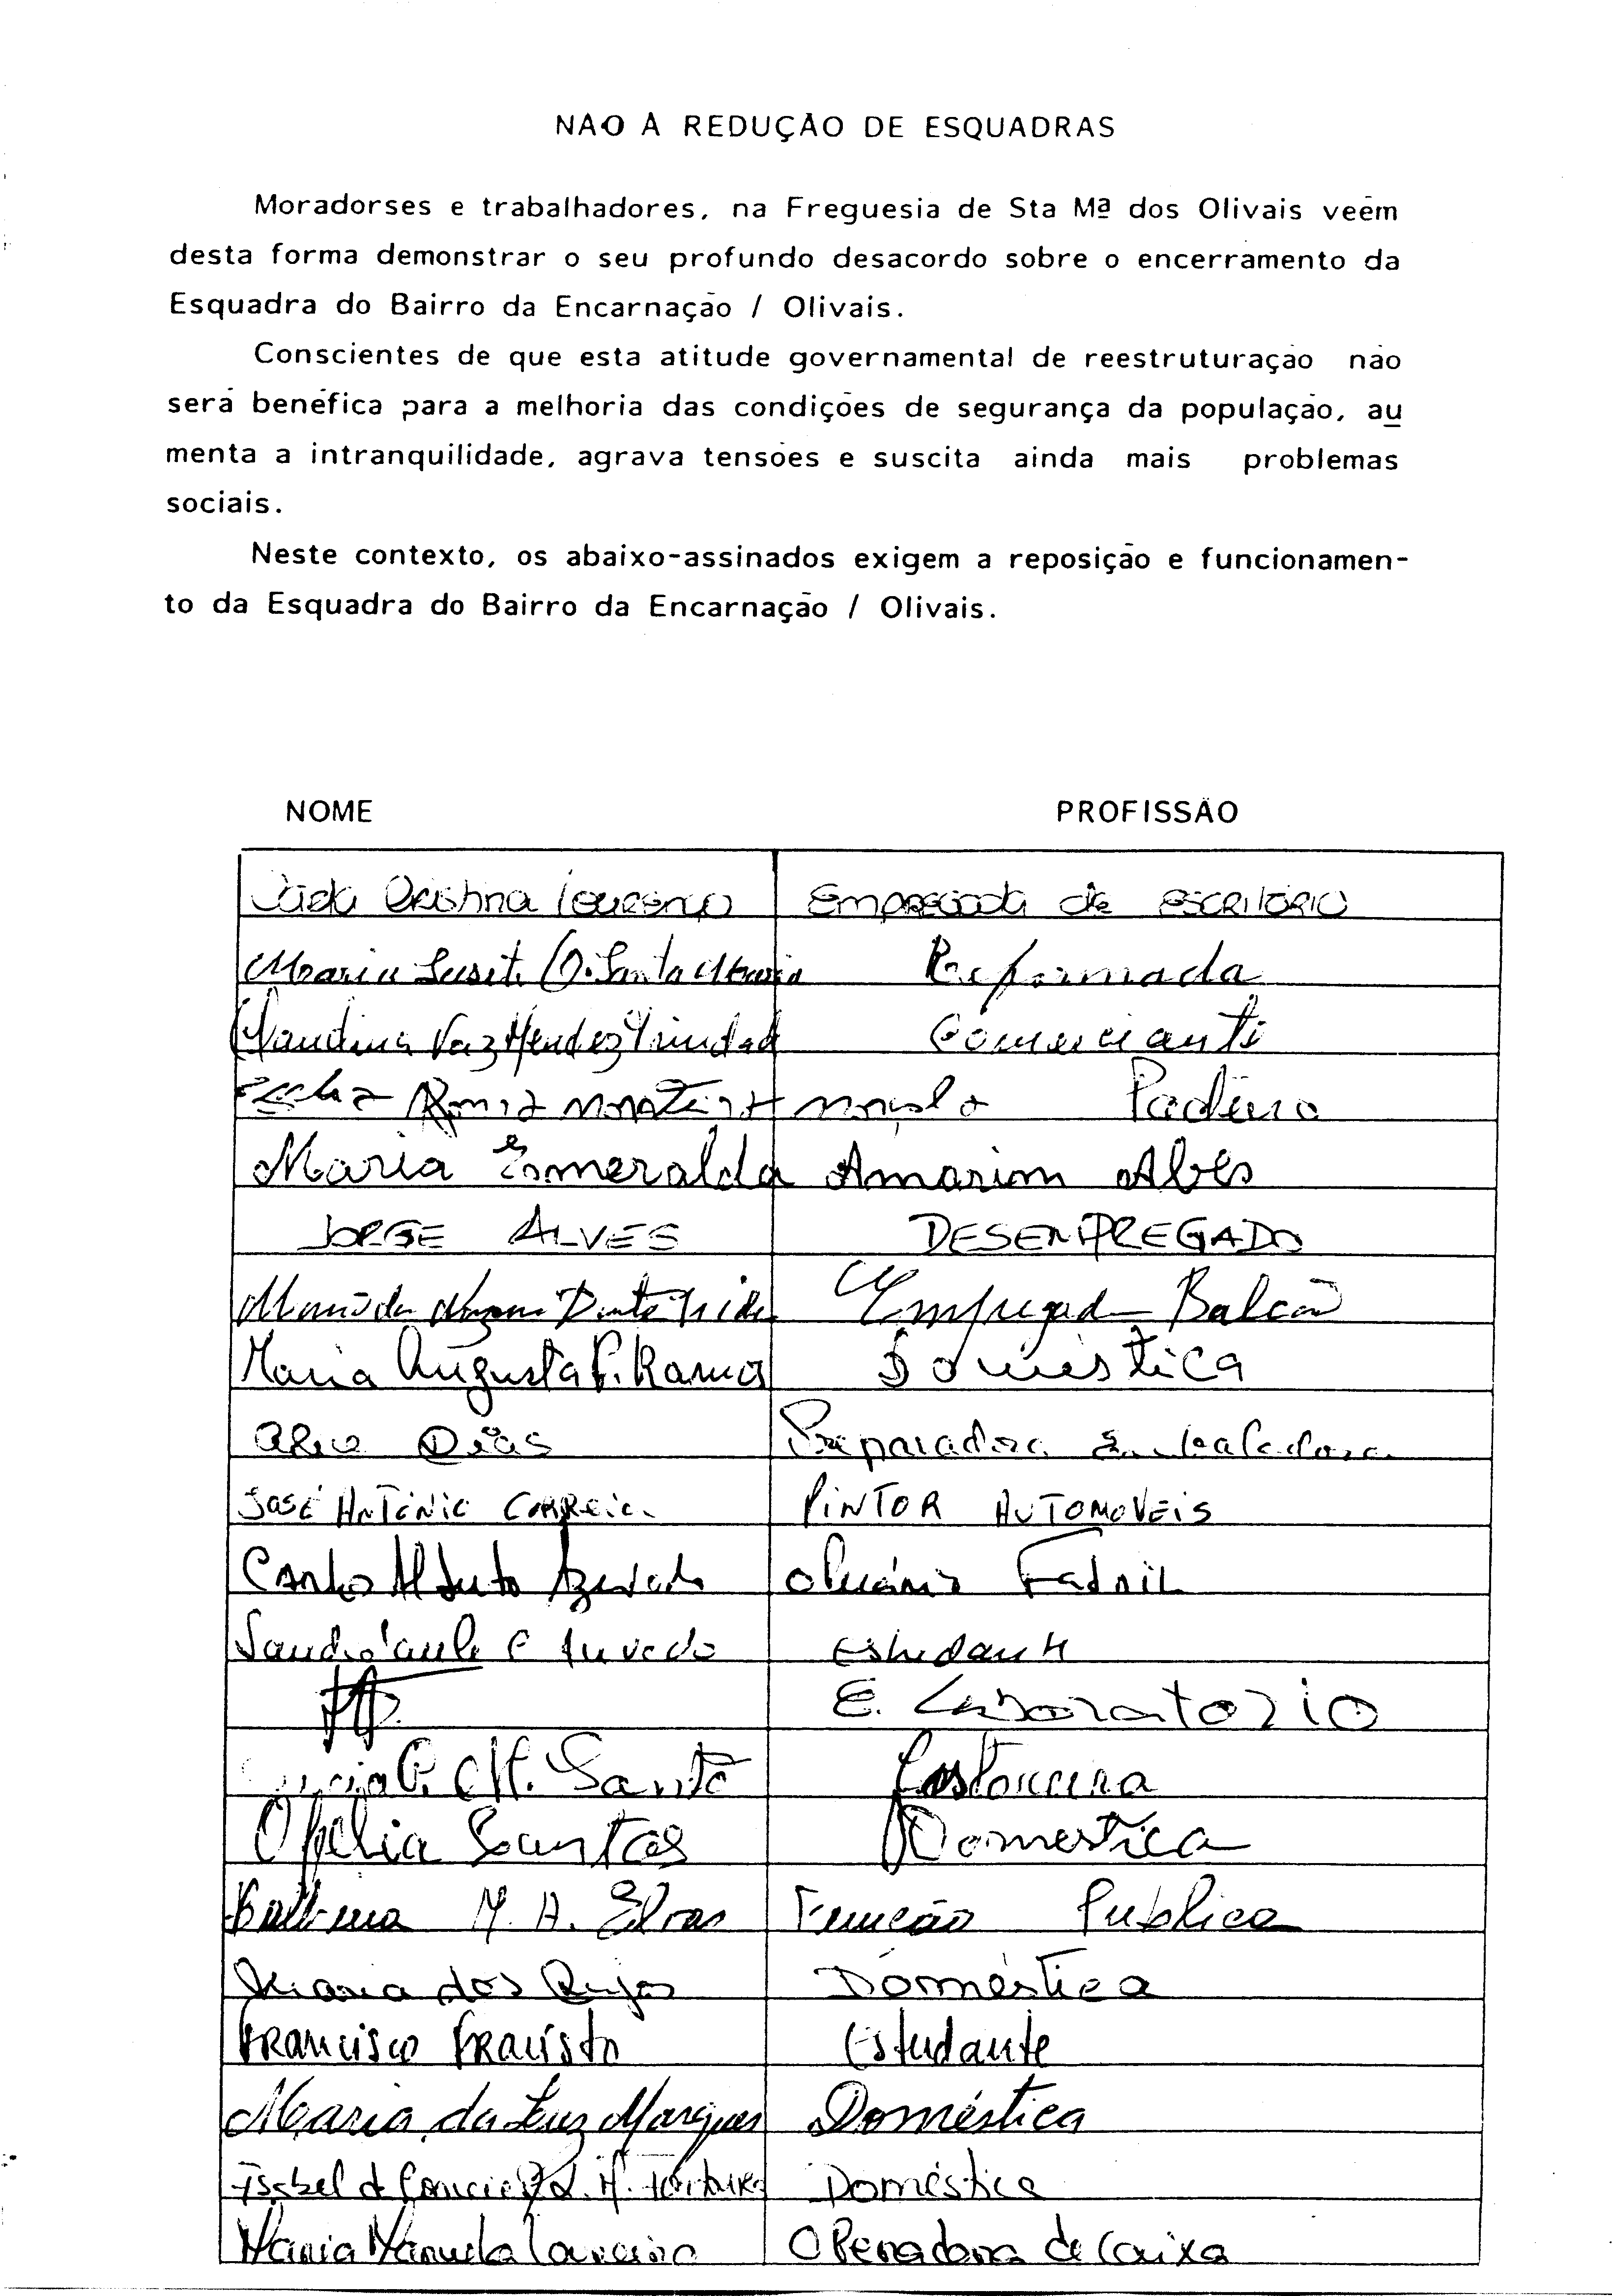 NAO A REDUÇÃO DE ESQUADRAS
Moradorses e trabalhadores, na Freguesia de Sta Mª dos Olivais veem
desta forma demonstrar o seu profundo desacordo sobre o encerramento da
Esquadra do Bairro da Encarnação / Olivais.
Conscientes de que esta atitude governamental de reestruturação não
será benéfica para a melhoria das condições de segurança da população, au
menta a intranquilidade, agrava tensões e suscita ainda mais problemas
sociais.
Neste contexto, os abaixo-assinados exigem a reposição e funcionamen-
to da Esquadra do Bairro da Encarnação / Olivais.
NOME PROFISSÃO
Cristina Lourenço Empregada de escritório
Maria Santa Maria Reformada
Claudina Vaz Mendez Trindad Comerciante
Padeiro
Maria Esmeralda Amarim Alves
JORGE ALVES DESEMPREGADO
Empregada Balcão
Maria Augusta P. Ramos Doméstica
Dias Preparadora Embaladora
José António Correia PINTOR AUTOMOVEIS
Carlos Alberto Azevedo Fabril
Estudante
E. Laboratorio
Costoureira
Ofelia Santos Domestica
M. A. Elvas Função Publica
Maria dos Doméstica
Francisco Estudante
Maria da Luz Marques Doméstica
Isabel Doméstica
Maria Manuela Loureiro Operadora de Caixa